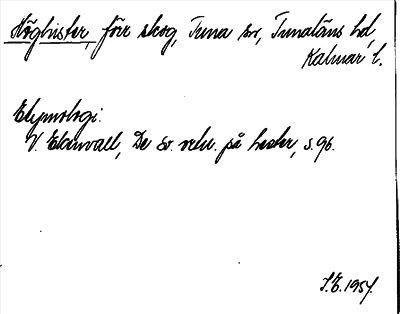 Höghister, förr skog, Tuna sn, Tunaläns hd,
Kalmar l.
Etymologi:
V. Ekenvall, De sv. neln. på hester, s. 96.
S.E. 1957.